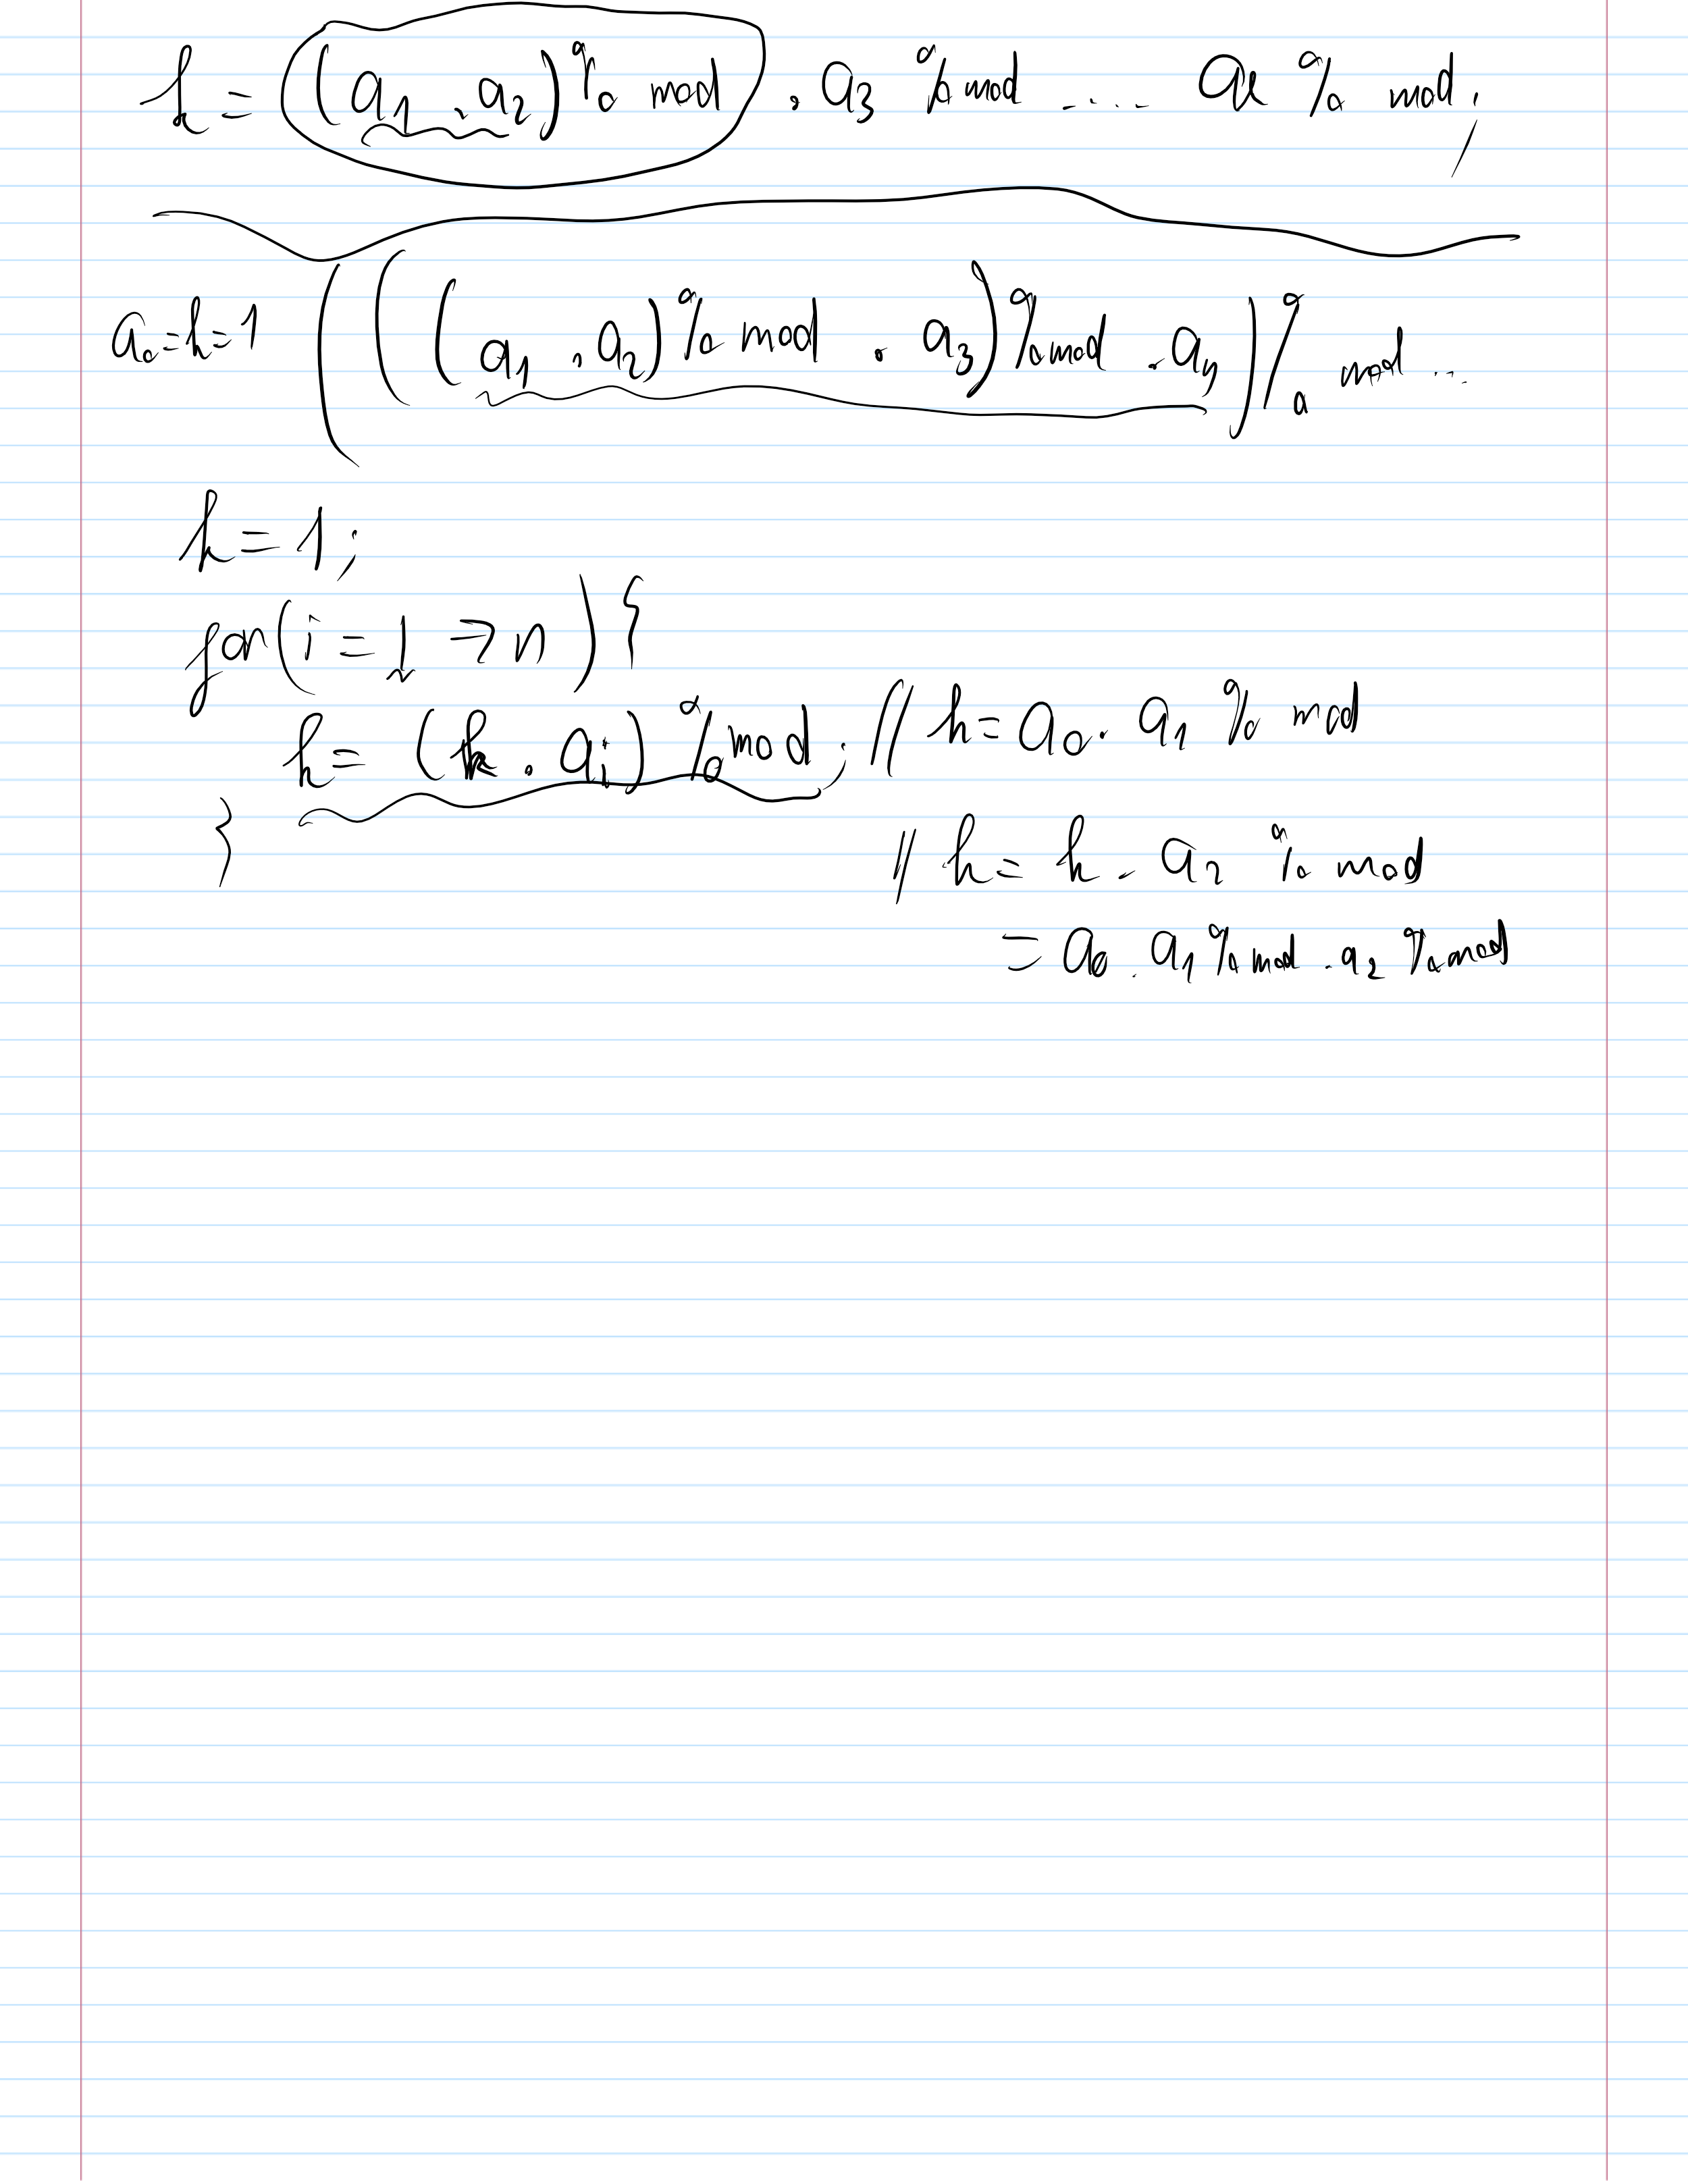 h = (a₁ . a₂) % mod . a₃ % mod ..... aₙ % mod;
a₀ = h = 1 (((a₁ . a₂) % mod . a₃) % mod . a₄) % mod ...
h = 1;
for (i = 1 → n) {
h = (h . aᵢ) % mod; // h = a₀ . a₁ % mod
} // h = h . a₂ % mod
= a₀ . a₁ % mod . a₂ % mod